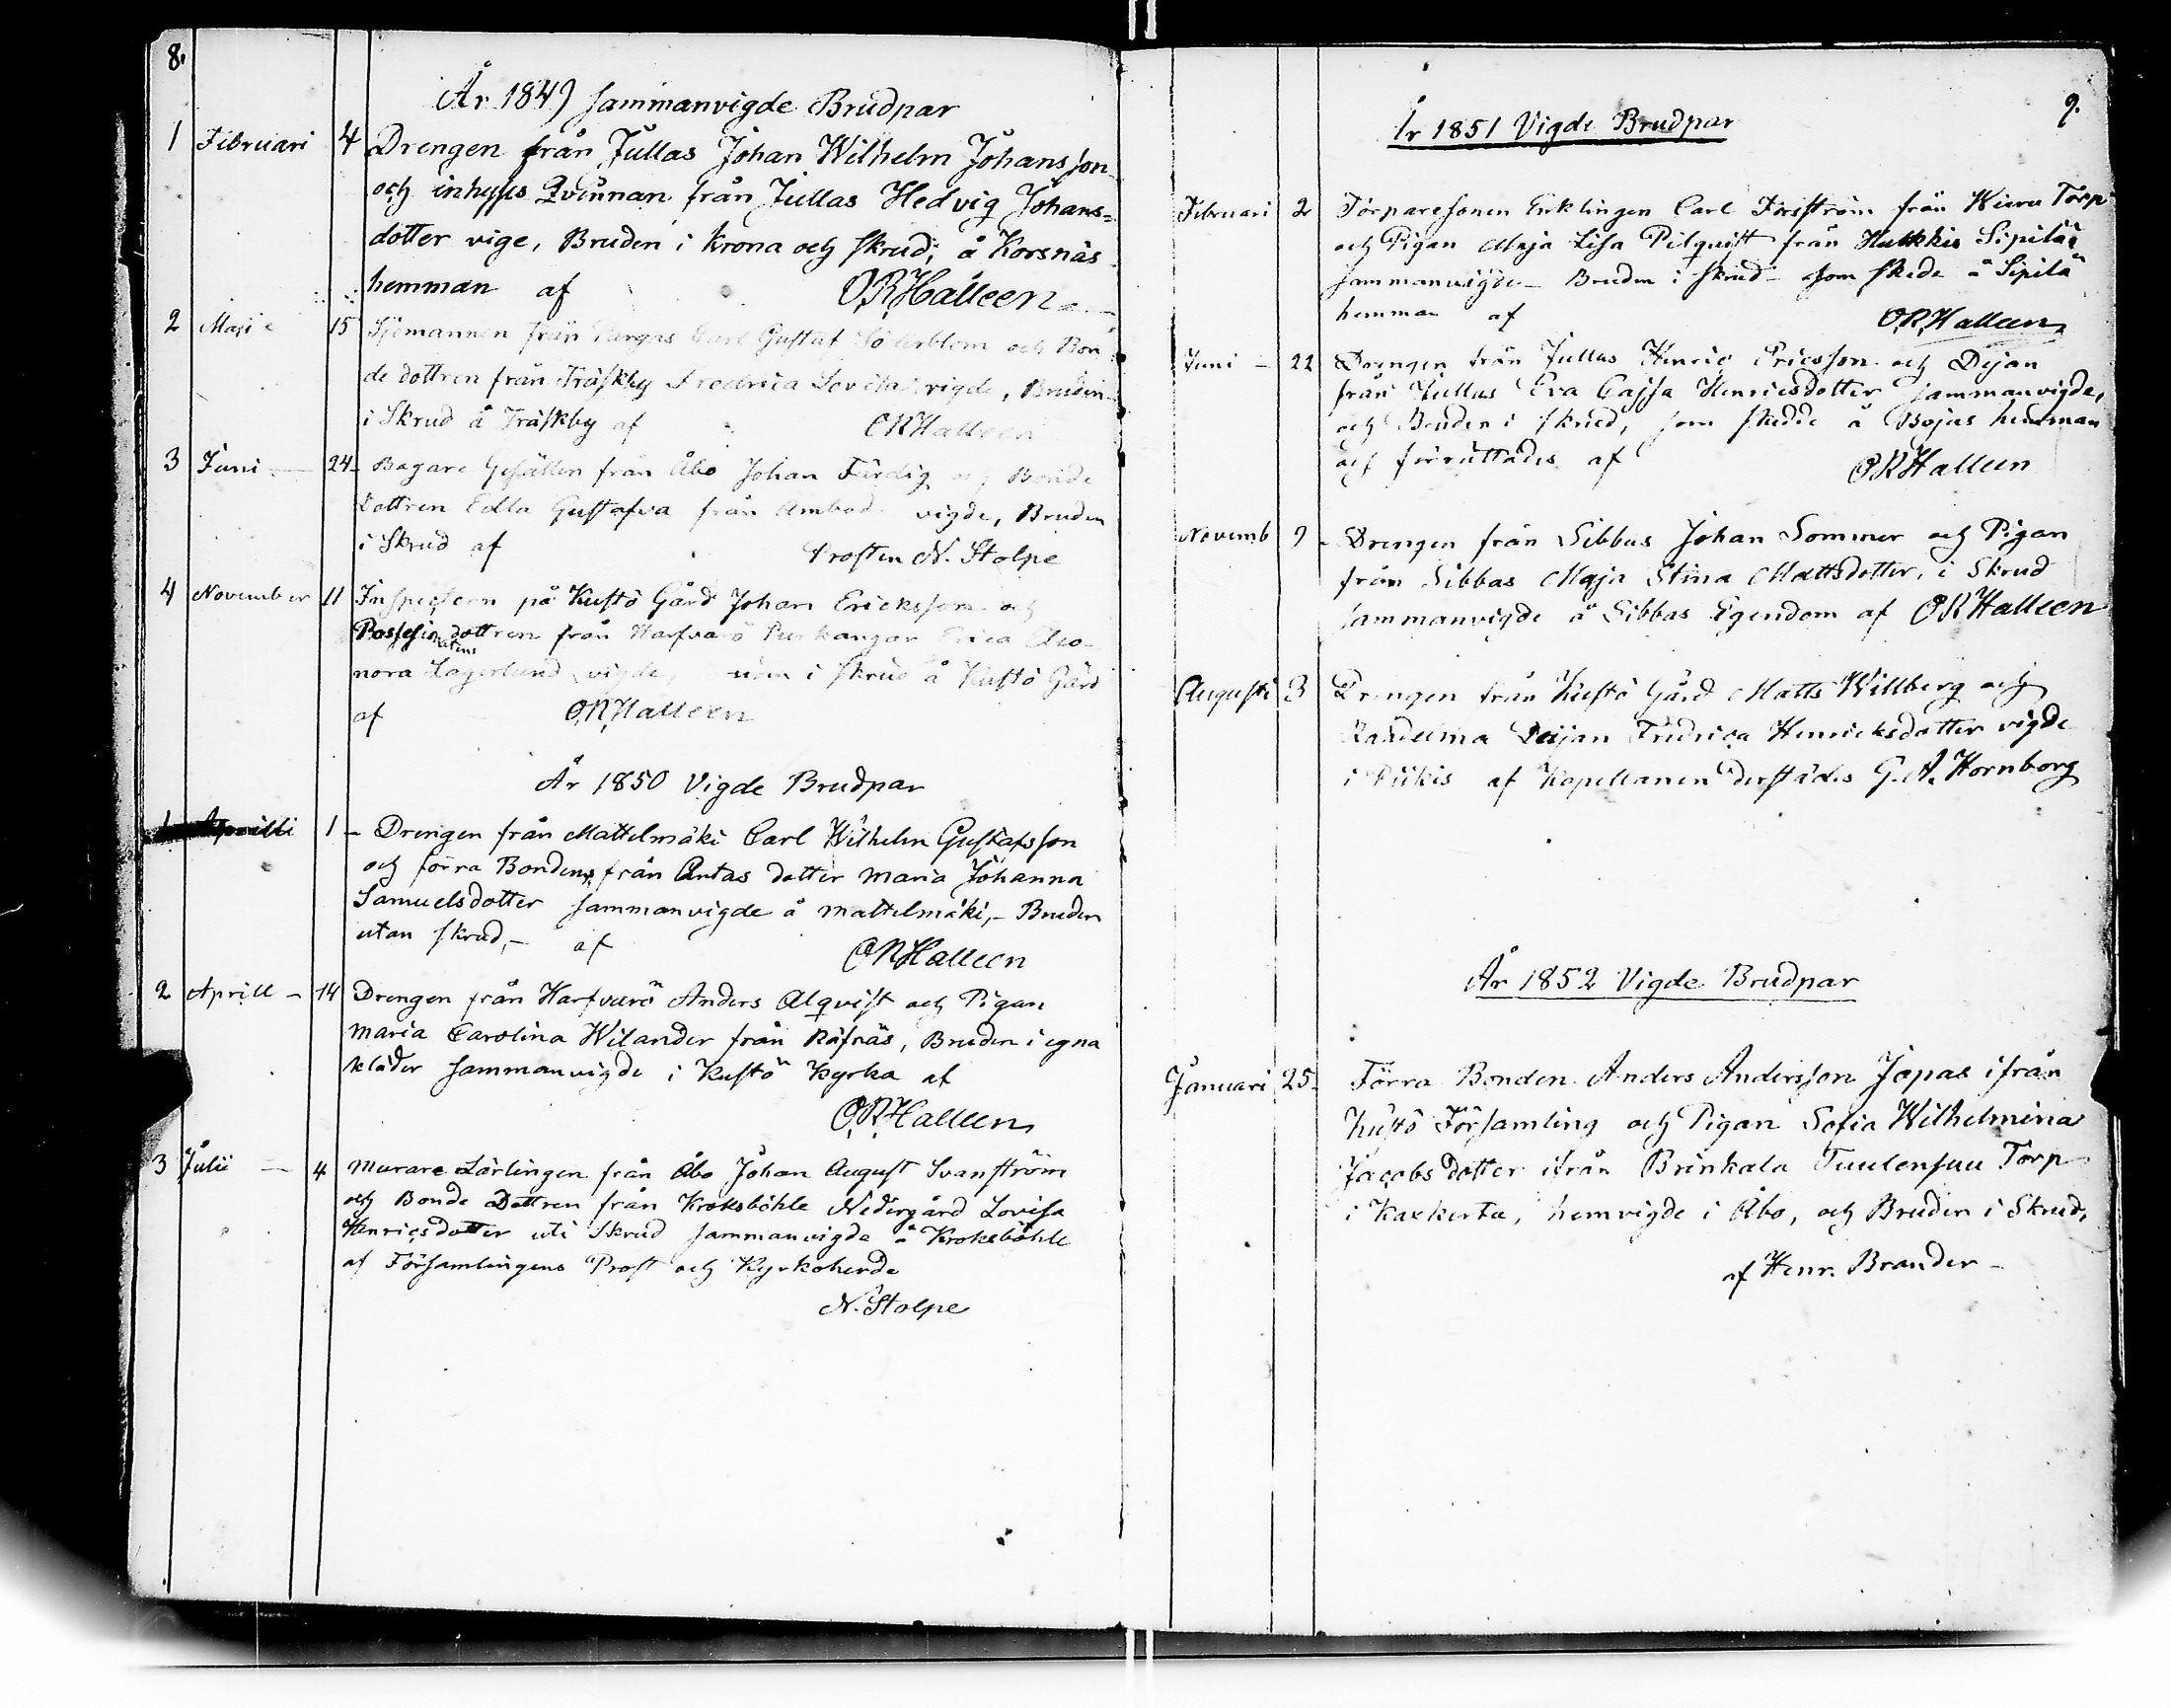 8.
År 1849 sammanvigde Brudpar
1 Februari 4 Drengen från Jullas Johan Wilhelm Johansson
och inhyses Qvinnan från Jullas Hedvig Johans=
dotter vige, Bruden i Krona och skrud, å Korsnäs
hemman af ORHalleen
2 Maji 15 Sjömannen från Pargas Carl Gustaf Söderblom och Bon
de dottren från Träskby Fredrica Lovisa vigde, Bruden
i Skrud å Träskby af ORHalleen
3 Juni 24 Bagare Gesällen från Åbo Johan Färdig och Bonde
Dottren Edla Gustafva från vigde, Bruden
i Skrud af Prosten N. Stolpe
4 November 11 Inspectorn på Kustö Gård Johan Ericksson och
Possessionatens dottren från Harfvarö Erica Eleo-
nora Lagerlund vigde, i skrud å Kustö Gård
af ORHalleen
År 1850 Vigde Brudpar
1 Aprilli 1 - Drengen från Mattelmäki Carl Wilhelm Gustafsson
och förra Bondens från Antas dotter Maria Johanna
Samuelsdotter sammanvigde å Mattelmäki, - Bruden
utan skrud, - af ORHalleen
2 Aprill - 14 Drengen från Harfvarö Anders Alqvist och Pigan
Maria Carolina Wilander från Räfnäs, Bruden i egna
kläder sammanvigde i Kustö Kyrka af
ORHalleen
3 Julii - 4 Murare Lärlingen från Åbo Johan August Svanström
och Bonde Dottren från Kroksböhle Nedergård Lovisa
Henricsdotter uti Skrud sammanvigde å Kroksböhle
af Församlingens Prost och Kyrkoherde
N. Stolpe
9.
År 1851 Vigde Brudpar
Februari 2 Torparesonen Enklingen Carl Forsström från Wiera Torp
och Pigan Maja Lisa Pilquist från Hulkkis Sipilä
sammanvigde - Bruden i skrud - som skedde å Sipilä
hemman af ORHalleen
Juni - 22 Drengen från Jullas Henric Ericsson och Dejan
från Jullas Eva Cajsa Henricsdotter sammanvigde,
och Bruden i skrud, som skedde å Bojas hemman
och förrättades af ORHalleen
Novemb 9 - Drengen från Sibbas Johan Sommer och Pigan
från Sibbas Maja Stina Mattsdotter, i Skrud
sammanvigde å Sibbas Egendom af ORHalleen
Augusti 3 Drengen från Kustö Gård Matts Willberg och
Deijan Fredrica Henricksdotter vigde
i Piikis af Kapellanen derstädes G. A. Hornborg
År 1852 Vigde Brudpar
Januari 25 Förra Bonden Anders Andersson Jopas ifrån
Kustö Församling och Pigan Sofia Wilhelmina
Jacobsdotter ifrån Brinkala Tuulensuu Torp
i Kakkerta, hemvigde i Åbo, och Bruden i Skrud,
af Henr. Brander -